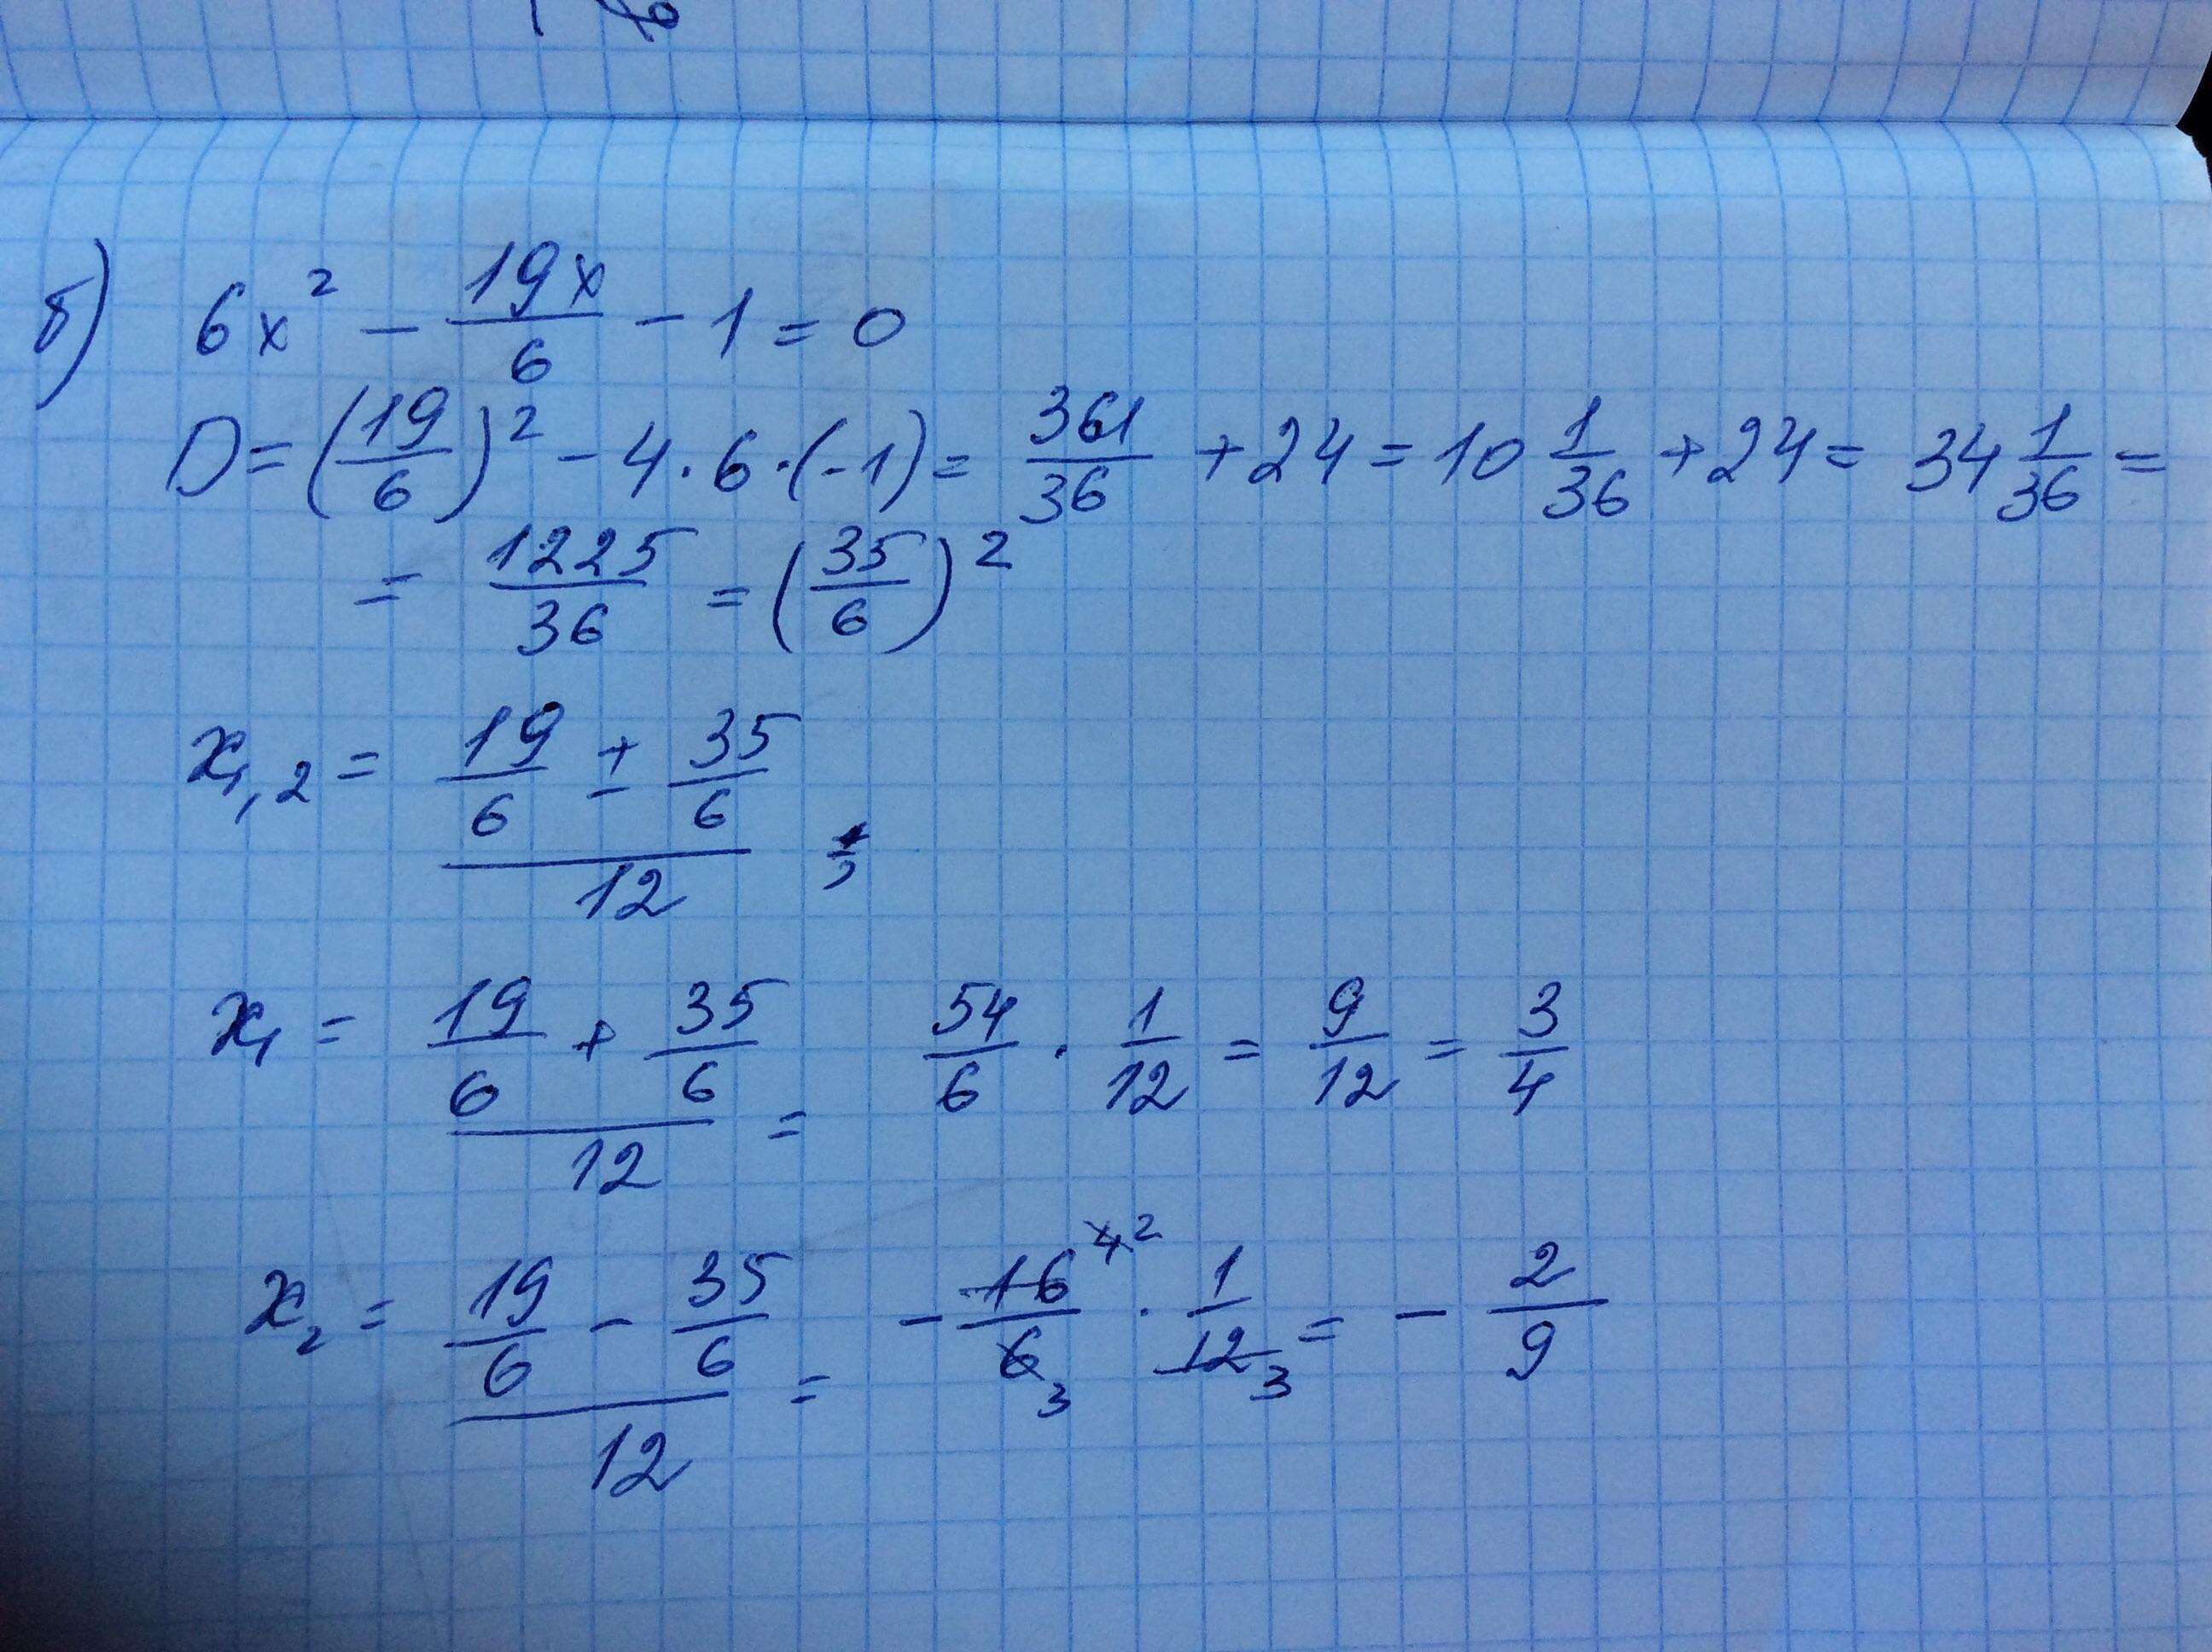 б) 6x² - 19x/6 - 1 = 0
D = (19/6)² - 4·6·(-1) = 361/36 + 24 = 10 1/36 + 24 = 34 1/36 =
= 1225/36 = (35/6)²
x₁,₂ = (19/6 ± 35/6)/12 ;
x₁ = (19/6 + 35/6)/12 = 54/6 · 1/12 = 9/12 = 3/4
x₂ = (19/6 - 35/6)/12 = - 16 4 2/6 3 · 1/12 3 = - 2/9